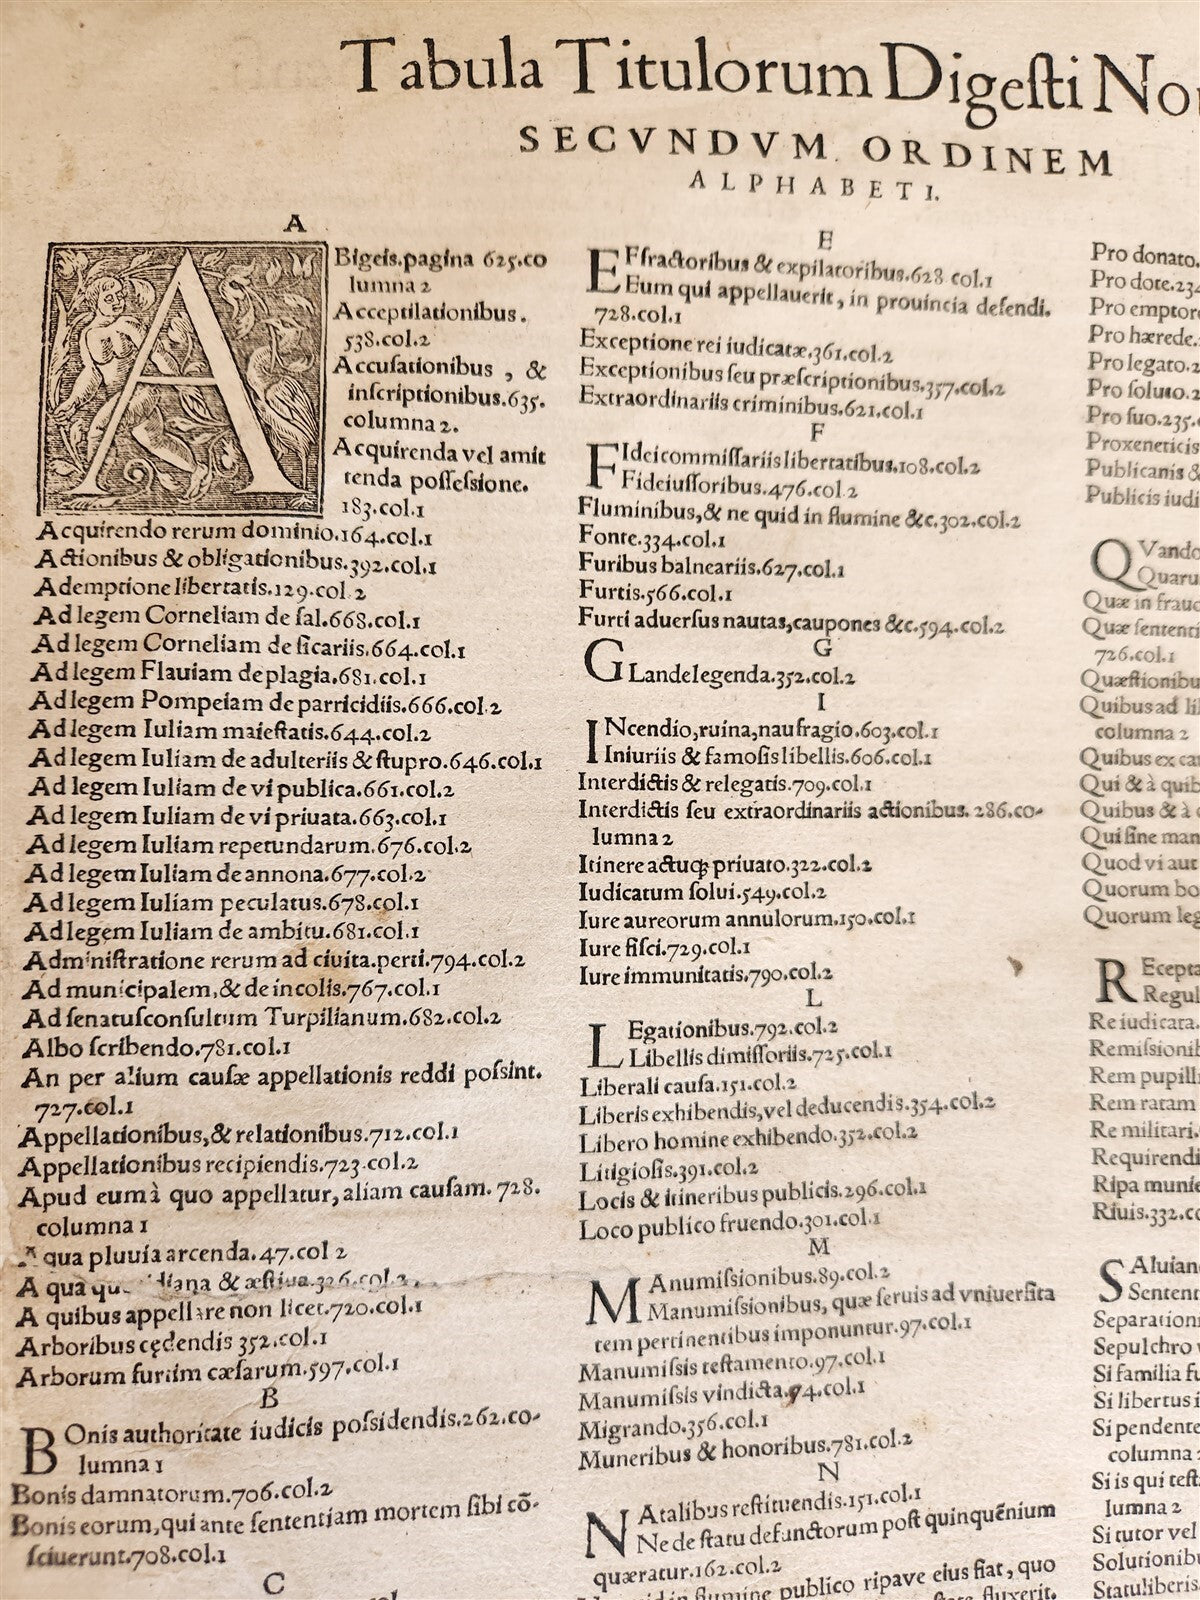 Tabula Titulorum Digesti
SECVNDVM ORDINEM
ALPHABETI.
A
ABigeis.pagina 625.co
lumna 2
Acceptilationibus.
538.col.2
Accuſationibus, &
inſcriptionibus.635.
columna 2.
Acquirenda vel amit
tenda poſſeſsione.
183.col.1
Acquirendo rerum dominio.164.col.1
Actionibus & obligationibus.392.col.1
Ademptione libertatis.129.col.2
Ad legem Corneliam de fal.668.col.1
Ad legem Corneliam de ſicariis.664.col.1
Ad legem Flauiam de plagia.681.col.1
Ad legem Pompeiam de parricidiis.666.col.2
Ad legem Iuliam maieſtatis.644.col.2
Ad legem Iuliam de adulteriis & ſtupro.646.col.1
Ad legem Iuliam de vi publica.661.col.2
Ad legem Iuliam de vi priuata.663.col.1
Ad legem Iuliam repetundarum.676.col.2
Ad legem Iuliam de annona.677.col.2
Ad legem Iuliam peculatus.678.col.1
Ad legem Iuliam de ambitu.681.col.1
Adminiſtratione rerum ad ciuita.perti.794.col.2
Ad municipalem,& de incolis.767.col.1
Ad ſenatuſconſultum Turpilianum.682.col.2
Albo ſcribendo.781.col.1
An per alium cauſæ appellationis reddi poſsint.
727.col.1
Appellationibus,& relationibus.712.col.1
Appellationibus recipiendis.723.col.2
Apud eum à quo appellatur, aliam cauſam. 728.
columna 1
Aqua pluuia arcenda.47.col 2
Aqua & æſtiua.326.col.2.
A quibus appellare non licet.720.col.1
Arboribus cędendis 352.col.1
Arborum furtim cæſarum.597.col.1
B
BOnis authoritate iudicis poſsidendis.262.co-
lumna 1
Bonis damnatorum.706.col.2
Bonis eorum,qui ante ſententiam mortem ſibi cō-
ſciuerunt.708.col.1
C
E
EFfractoribus & expilatoribus.628 col.1
Eum qui appellauerit, in prouincia defendi.
728.col.1
Exceptione rei iudicatæ.361.col.2
Exceptionibus ſeu præſcriptionibus.357.col.2
Extraordinariis criminibus.621.col.1
F
FIdeicommiſſariis libertatibus.108.col.2
Fideiuſſoribus.476.col 2
Fluminibus,& ne quid in flumine &c.302.col.2
Fonte.334.col.1
Furibus balneariis.627.col.1
Furtis.566.col.1
Furti aduerſus nautas,caupones &c.594.col.2
G
GLande legenda.352.col.2
I
INcendio,ruina,naufragio.603.col.1
Iniuriis & famoſis libellis.606.col.1
Interdictis & relegatis.709.col.1
Interdictis ſeu extraordinariis actionibus. 286.co-
lumna 2
Itinere actuq́; priuato.322.col.2
Iudicatum ſolui.549.col.2
Iure aureorum annulorum.150.col.1
Iure fiſci.729.col.1
Iure immunitatis.790.col.2
L
LEgationibus.792.col.2
Libellis dimiſſoriis.725.col.1
Liberali cauſa.151.col.2
Liberis exhibendis,vel deducendis.354.col.2
Libero homine exhibendo.352.col.2
Litigioſis.391.col.2
Locis & itineribus publicis.296.col.1
Loco publico fruendo.301.col.1
M
MAnumiſsionibus.89.col.2
Manumiſsionibus, quæ ſeruis ad vniuerſita
tem pertinentibus imponuntur.97.col.1
Manumiſsis teſtamento.97.col.1
Manumiſsis vindicta.94.col.1
Migrando.356.col.1
Muneribus & honoribus.781.col.2
N
NAtalibus reſtituendis.151.col.1
Ne de ſtatu defunctorum poſt quinquēnium
quæratur.162.col.2
flumine publico ripave eius fiat, quo
fluxerit.
Pro donato.
Pro dote.234
Pro emptore
Pro hærede.
Pro legato.2
Pro ſoluto.2
Pro ſuo.235.
Proxeneticis
Publicanis &
Publicis iudi
QVando
Quaru
Quæ in fraud
Quæ ſententi
726.col.1
Quæſtionibu
Quibus ad li
columna 2
Quibus ex ca
Qui & à quib
Quibus & à
Qui ſine man
Quod vi aut
Quorum bo
Quorum leg
REcepta
Regul
Re iudicata.
Remiſsionib
Rem pupilli
Rem ratam
Re militari.
Requirendi
Ripa munie
Riuis.332.co
SAluian
Sentent
Separation
Sepulchro v
Si familia fu
Si libertus i
Si pendente
columna
Si is qui teſt
lumna 2
Si tutor vel
Solutionibu
Statuliberis.